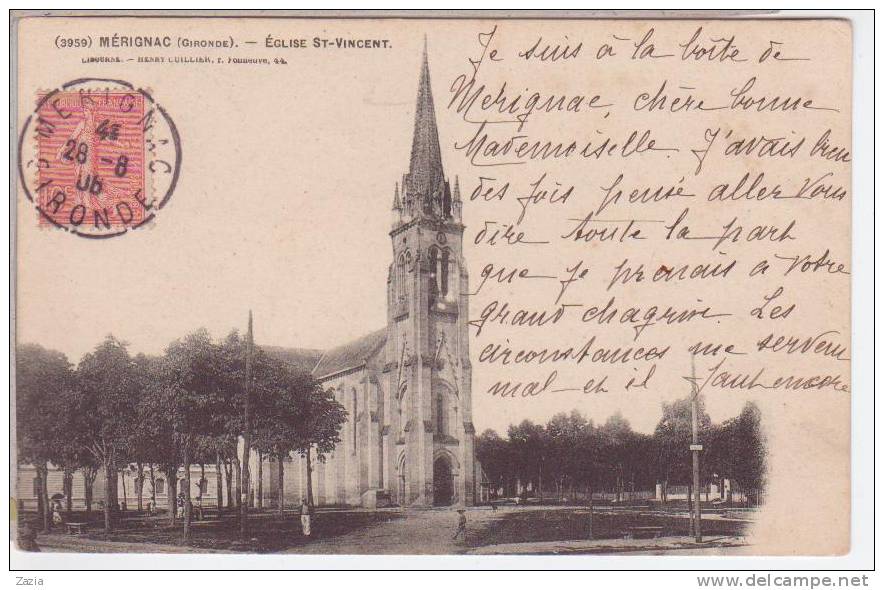 (3959) MÉRIGNAC (GIRONDE). — ÉGLISE ST-VINCENT.
LIBOURNE. — HENRY GUILLIER, r. Fonneuve, 44.
MERIGNAC
4E
28 -8
06
GIRONDE
Je suis à la boîte de
Mérignac, chère bonne
Mademoiselle. J'avais bien
des fois pensé aller Vous
dire toute la part
que je prenais à votre
grand chagrin. Les
circonstances me servent
mal et il faut encore
Zazia
www.delcampe.net